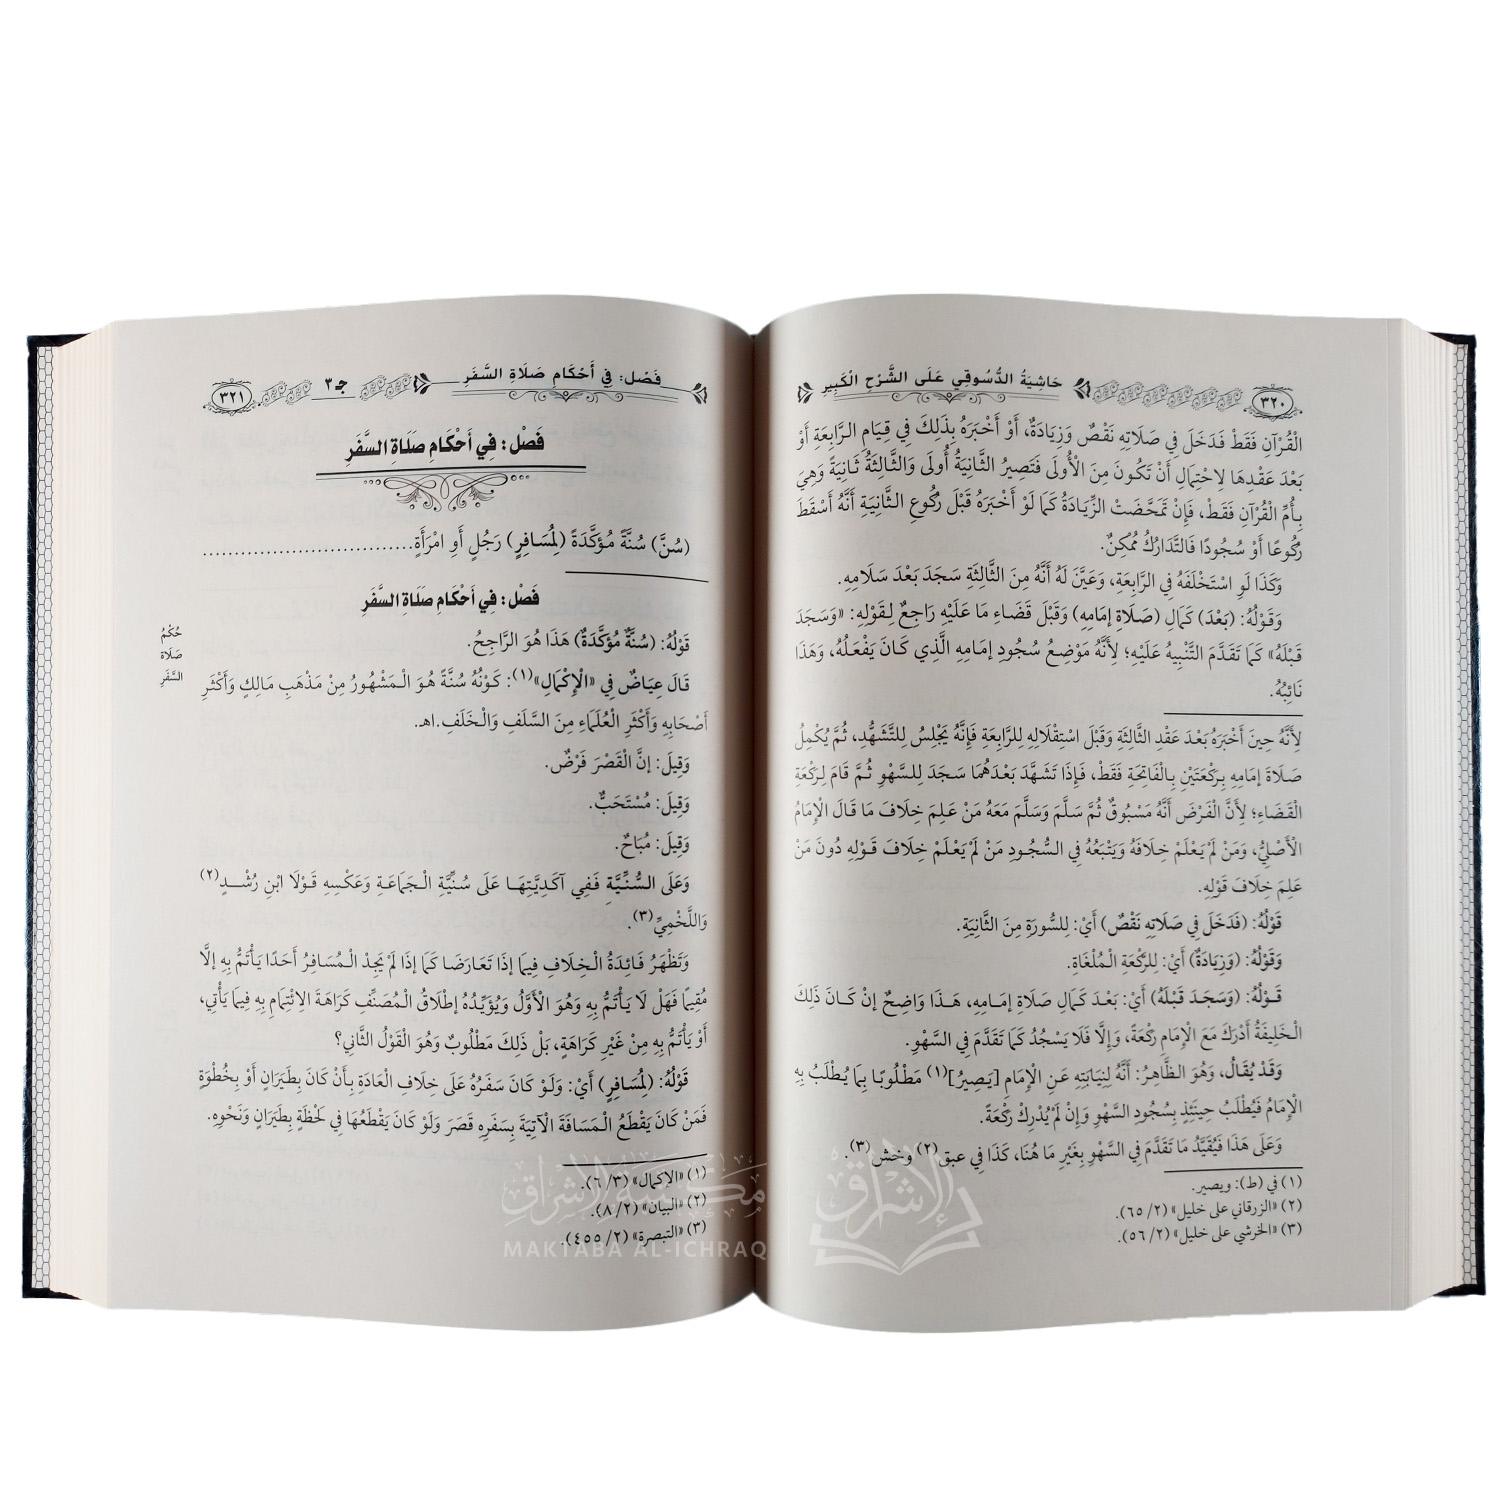 ٣٢٠
حَاشِيَةُ الدُّسُوقِي عَلَى الشَّرْحِ الْكَبِيرِ
الْقُرْآنِ فَقَطْ فَدَخَلَ فِي صَلَاتِهِ نَقْصٌ وَزِيَادَةٌ، أَوْ أَخْبَرَهُ بِذَلِكَ فِي قِيَامِ الرَّابِعَةِ أَوْ
بَعْدَ عَقْدِهَا لِاحْتِمَالِ أَنْ تَكُونَ مِنَ الْأُولَى فَتَصِيرُ الثَّانِيَةُ أُولَى وَالثَّالِثَةُ ثَانِيَةً وَهِيَ
بِأُمِّ الْقُرْآنِ فَقَطْ، فَإِنْ تَمَحَّضَتْ الزِّيَادَةُ كَمَا لَوْ أَخْبَرَهُ قَبْلَ رُكُوعِ الثَّانِيَةِ أَنَّهُ أَسْقَطَ
رُكُوعًا أَوْ سُجُودًا فَالتَّدَارُكُ مُمْكِنٌ.
وَكَذَا لَوِ اسْتَخْلَفَهُ فِي الرَّابِعَةِ، وَعَيَّنَ لَهُ أَنَّهُ مِنَ الثَّالِثَةِ سَجَدَ بَعْدَ سَلَامِهِ.
وَقَوْلُهُ: (بَعْدَ) كَمَالِ (صَلَاةِ إمَامِهِ) وَقَبْلَ قَضَاءِ مَا عَلَيْهِ رَاجِعٌ لِقَوْلِهِ: «وَسَجَدَ
قَبْلَهُ» كَمَا تَقَدَّمَ التَّنْبِيهُ عَلَيْهِ؛ لِأَنَّهُ مَوْضِعُ سُجُودِ إمَامِهِ الَّذِي كَانَ يَفْعَلُهُ، وَهَذَا
نَائِبُهُ.
لِأَنَّهُ حِينَ أَخْبَرَهُ بَعْدَ عَقْدِ الثَّالِثَةِ وَقَبْلَ اسْتِقْلَالِهِ لِلرَّابِعَةِ فَإِنَّهُ يَجْلِسُ لِلتَّشَهُّدِ، ثُمَّ يُكْمِلُ
صَلَاةَ إمَامِهِ بِرَكْعَتَيْنِ بِالْفَاتِحَةِ فَقَطْ، فَإِذَا تَشَهَّدَ بَعْدَهُمَا سَجَدَ لِلسَّهْوِ ثُمَّ قَامَ لِرَكْعَةِ
الْقَضَاءِ؛ لِأَنَّ الْفَرْضَ أَنَّهُ مَسْبُوقٌ ثُمَّ سَلَّمَ وَسَلَّمَ مَعَهُ مَنْ عَلِمَ خِلَافَ مَا قَالَ الْإِمَامُ
الْأَصْلِيُّ، وَمَنْ لَمْ يَعْلَمْ خِلَافَهُ وَيَتْبَعُهُ فِي السُّجُودِ مَنْ لَمْ يَعْلَمْ خِلَافَ قَوْلِهِ دُونَ مَنْ
عَلِمَ خِلَافَ قَوْلِهِ.
قَوْلُهُ: (فَدَخَلَ فِي صَلَاتِهِ نَقْصٌ) أَيْ: لِلسُّورَةِ مِنَ الثَّانِيَةِ.
وَقَوْلُهُ: (وَزِيَادَةٌ) أَيْ: لِلرَّكْعَةِ الْمُلْغَاةِ.
قَوْلُهُ: (وَسَجَدَ قَبْلَهُ) أَيْ: بَعْدَ كَمَالِ صَلَاةِ إمَامِهِ، هَذَا وَاضِحٌ إنْ كَانَ ذَلِكَ
الْخَلِيفَةُ أَدْرَكَ مَعَ الْإِمَامِ رَكْعَةً، وَإِلَّا فَلَا يَسْجُدُ كَمَا تَقَدَّمَ فِي السَّهْوِ.
وَقَدْ يُقَالُ، وَهُوَ الظَّاهِرُ: أَنَّهُ لِنِيَابَتِهِ عَنِ الْإِمَامِ [يَصِيرُ](١) مَطْلُوبًا بِمَا يُطْلَبُ بِهِ
الْإِمَامُ فَيُطْلَبُ حِينَئِذٍ بِسُجُودِ السَّهْوِ وَإِنْ لَمْ يُدْرِكْ رَكْعَةً.
وَعَلَى هَذَا فَيُقَيَّدُ مَا تَقَدَّمَ فِي السَّهْوِ بِغَيْرِ مَا هُنَا، كَذَا فِي عبق(٢) وخش(٣).
(١) في (ط): ويصير.
(٢) «الزرقاني على خليل» (٢/ ٦٥).
(٣) «الخرشي على خليل» (٢/ ٥٦).
فَصْل: فِي أَحْكَامِ صَلَاةِ السَّفَرِ
جـ ٣
٣٢١
فَصْل: فِي أَحْكَامِ صَلَاةِ السَّفَرِ
(سُنَّ) سُنَّةً مُؤَكَّدَةً (لِمُسَافِرٍ) رَجُلٍ أَوِ امْرَأَةٍ.................................
فَصْل: فِي أَحْكَامِ صَلَاةِ السَّفَرِ
قَوْلُهُ: (سُنَّةٌ مُؤَكَّدَةٌ) هَذَا هُوَ الرَّاجِحُ.
حُكْمُ
صَلَاةِ
السَّفَرِ
قَالَ عِيَاضٌ فِي «الْإِكْمَالِ»(١): كَوْنُهُ سُنَّةً هُوَ الْمَشْهُورُ مِنْ مَذْهَبِ مَالِكٍ وَأَكْثَرِ
أَصْحَابِهِ وَأَكْثَرِ الْعُلَمَاءِ مِنَ السَّلَفِ وَالْخَلَفِ.اهـ.
وَقِيلَ: إنَّ الْقَصْرَ فَرْضٌ.
وَقِيلَ: مُسْتَحَبٌّ.
وَقِيلَ: مُبَاحٌ.
وَعَلَى السُّنِّيَّةِ فَفِي آكَدِيَّتِهَا عَلَى سُنِّيَّةِ الْجَمَاعَةِ وَعَكْسِهِ قَوْلَا ابْنِ رُشْدٍ(٢)
وَاللَّخْمِيِّ(٣).
وَتَظْهَرُ فَائِدَةُ الْخِلَافِ فِيمَا إذَا تَعَارَضَا كَمَا إذَا لَمْ يَجِدْ الْمُسَافِرُ أَحَدًا يَأْتَمُّ بِهِ إلَّا
مُقِيمًا فَهَلْ لَا يَأْتَمُّ بِهِ وَهُوَ الْأَوَّلُ وَيُؤَيِّدُهُ إطْلَاقُ الْمُصَنِّفِ كَرَاهَةَ الِائْتِمَامِ بِهِ فِيمَا يَأْتِي،
أَوْ يَأْتَمُّ بِهِ مِنْ غَيْرِ كَرَاهَةٍ، بَلْ ذَلِكَ مَطْلُوبٌ وَهُوَ الْقَوْلُ الثَّانِي؟
قَوْلُهُ: (لِمُسَافِرٍ) أَيْ: وَلَوْ كَانَ سَفَرُهُ عَلَى خِلَافِ الْعَادَةِ بِأَنْ كَانَ بِطَيَرَانٍ أَوْ بِخُطْوَةٍ
فَمَنْ كَانَ يَقْطَعُ الْمَسَافَةَ الْآتِيَةَ بِسَفَرِهِ قَصَرَ وَلَوْ كَانَ يَقْطَعُهَا فِي لَحْظَةٍ بِطَيَرَانٍ وَنَحْوِهِ.
(١) «الإكمال» (٣/ ٦).
(٢) «البيان» (٢/ ٨).
(٣) «التبصرة» (٢/ ٤٥٥).
مكتبة الإشراق
MAKTABA AL-ICHRAQ
الإشراق